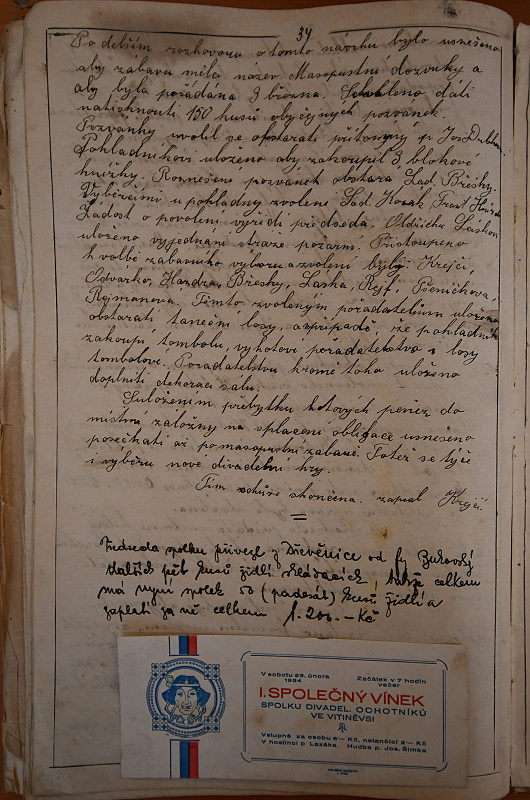 34
Po delším rozhovoru o tomto návrhu bylo usneseno
aby zábava měla název Masopustní dozvuky a
aby byla pořádána 8 března. dáti
natisknouti 150 kusů obyčejných pozvánek.
Pozvánky uvolil se obstarati přítomný p. Jos.
Pokladníkovi uloženo aby zakoupil 3 blokové
knížky. Roznešení pozvánek obstará Lad. Břeský.
Výběrčími u pokladny zvoleni Lad. Hosák, Frant.
Žádost o povolení vyřídí předseda. Oldřichu Laskovi
uloženo vyjednání stráže požární. Přistoupeno
k volbě zábavního výboru a zvoleni byli: Krejčí,
Odvarko, Handra, Břeský, Laska, Rejf, Pšeničková,
Rajmanova. Těmto zvoleným pořadatelům uloženo
obstarati taneční losy, a v případě, že pokladník
zakoupí tombolu, vyhotoví pořadatelstvo i losy
tombolové. Pořadatelstvu kromě toho uloženo
doplniti dekoraci sálu.
S uložením přebytku hotových peněz do
místní záložny na splacení obligace usneseno
posečkati až po masopustní zábavě. Totéž se týče
i výběru nové divadelní hry.
Tím schůze skončena. zapsal Krejčí.
Předseda spolku přivezl z Dřevěnice od fy Bukovský
dalších pět kusů židlí skládacích, takže celkem
má nyní spolek 50 (padesát) kusů židlí a
zaplatil za ně celkem 1.200.- Kč
V sobotu 23. února
1924
Začátek v 7 hodin
večer
I. SPOLEČNÝ VÍNEK
SPOLKU DIVADEL. OCHOTNÍKŮ
VE VITINĚVSI
Vstupné za osobu 5·— Kč, netančící 2·— Kč
V hostinci p. Lazáka. Hudba p. Jos. Šimka